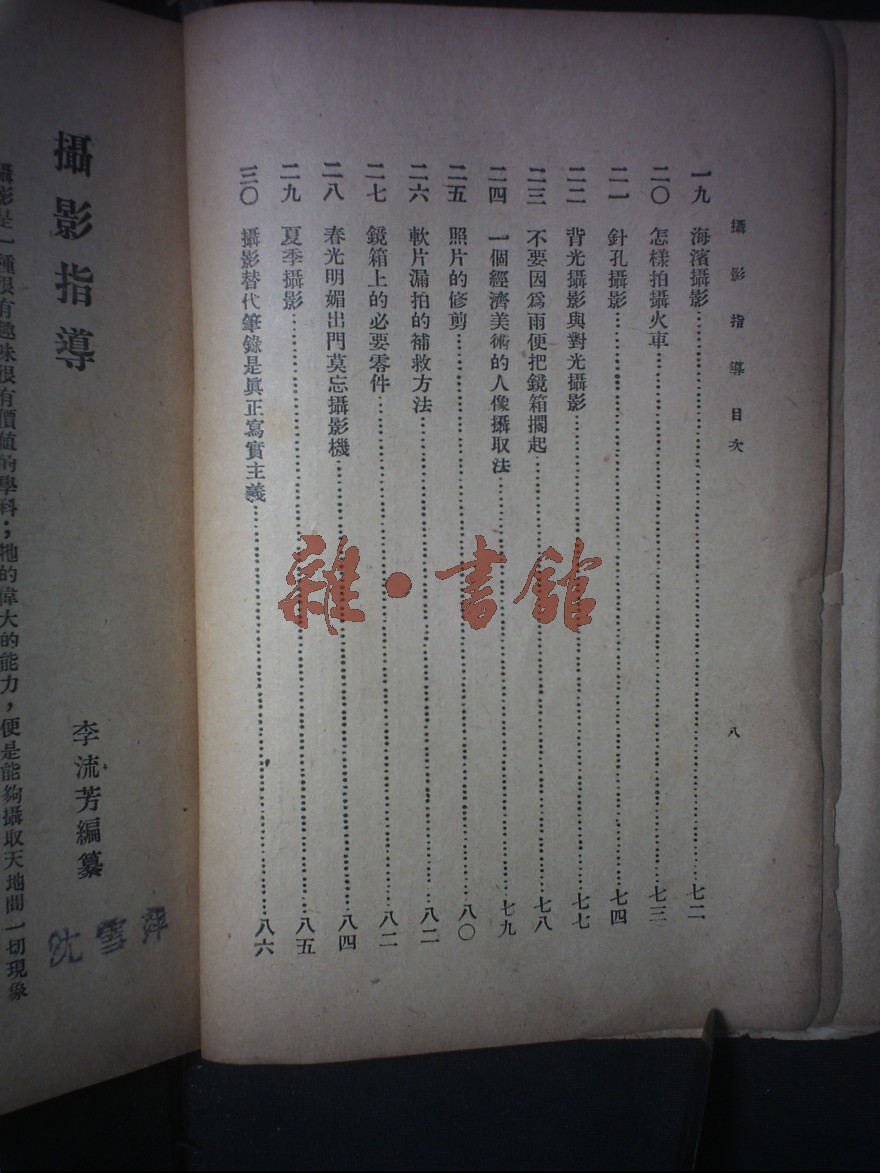 攝影指導目次
八
一九 海濱攝影……七二
二〇 怎樣拍攝火車……七三
二一 針孔攝影……七四
二二 背光攝影與對光攝影……七七
二三 不要因爲雨便把鏡箱擱起……七八
二四 一個經濟美術的人像攝取法……七九
二五 照片的修剪……八〇
二六 軟片漏拍的補救方法……八二
二七 鏡箱上的必要零件……八二
二八 春光明媚出門莫忘攝影機……八四
二九 夏季攝影……八五
三〇 攝影替代筆錄是眞正寫實主義……八六
雜·書館
攝影指導
李流芳編纂
沈雪萍
攝影是一種很有趣味很有價値的學科；牠的偉大的能力，便是能夠攝取天地間一切現象